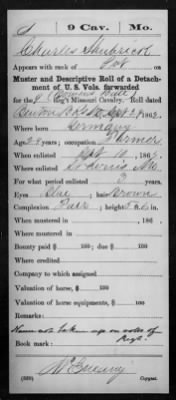 9 Cav. Mo.
Charles
Appears with rank of Pvt
Muster and Descriptive Roll of a Detach-
ment of U. S. Vols. forwarded
for the 9 Reg't Missouri Cavalry. Roll dated
Benton Bks Mo, Sept 29, 1862.
Where born Germany
Age 24 years; occupation Farmer
When enlisted Sept 10, 1862.
Where enlisted St Louis Mo.
For what period enlisted 3 years.
Eyes Blue; hair Brown
Complexion Fair; height 5 ft. in.
When mustered in , 186 .
Where mustered in
Bounty paid $ 100; due $ 100
Where credited
Company to which assigned
Valuation of horse, $ 100
Valuation of horse equipments, $ 100
Remarks:
Name not taken up on rolls of
Regt.
Book mark:
(339) Copyist.